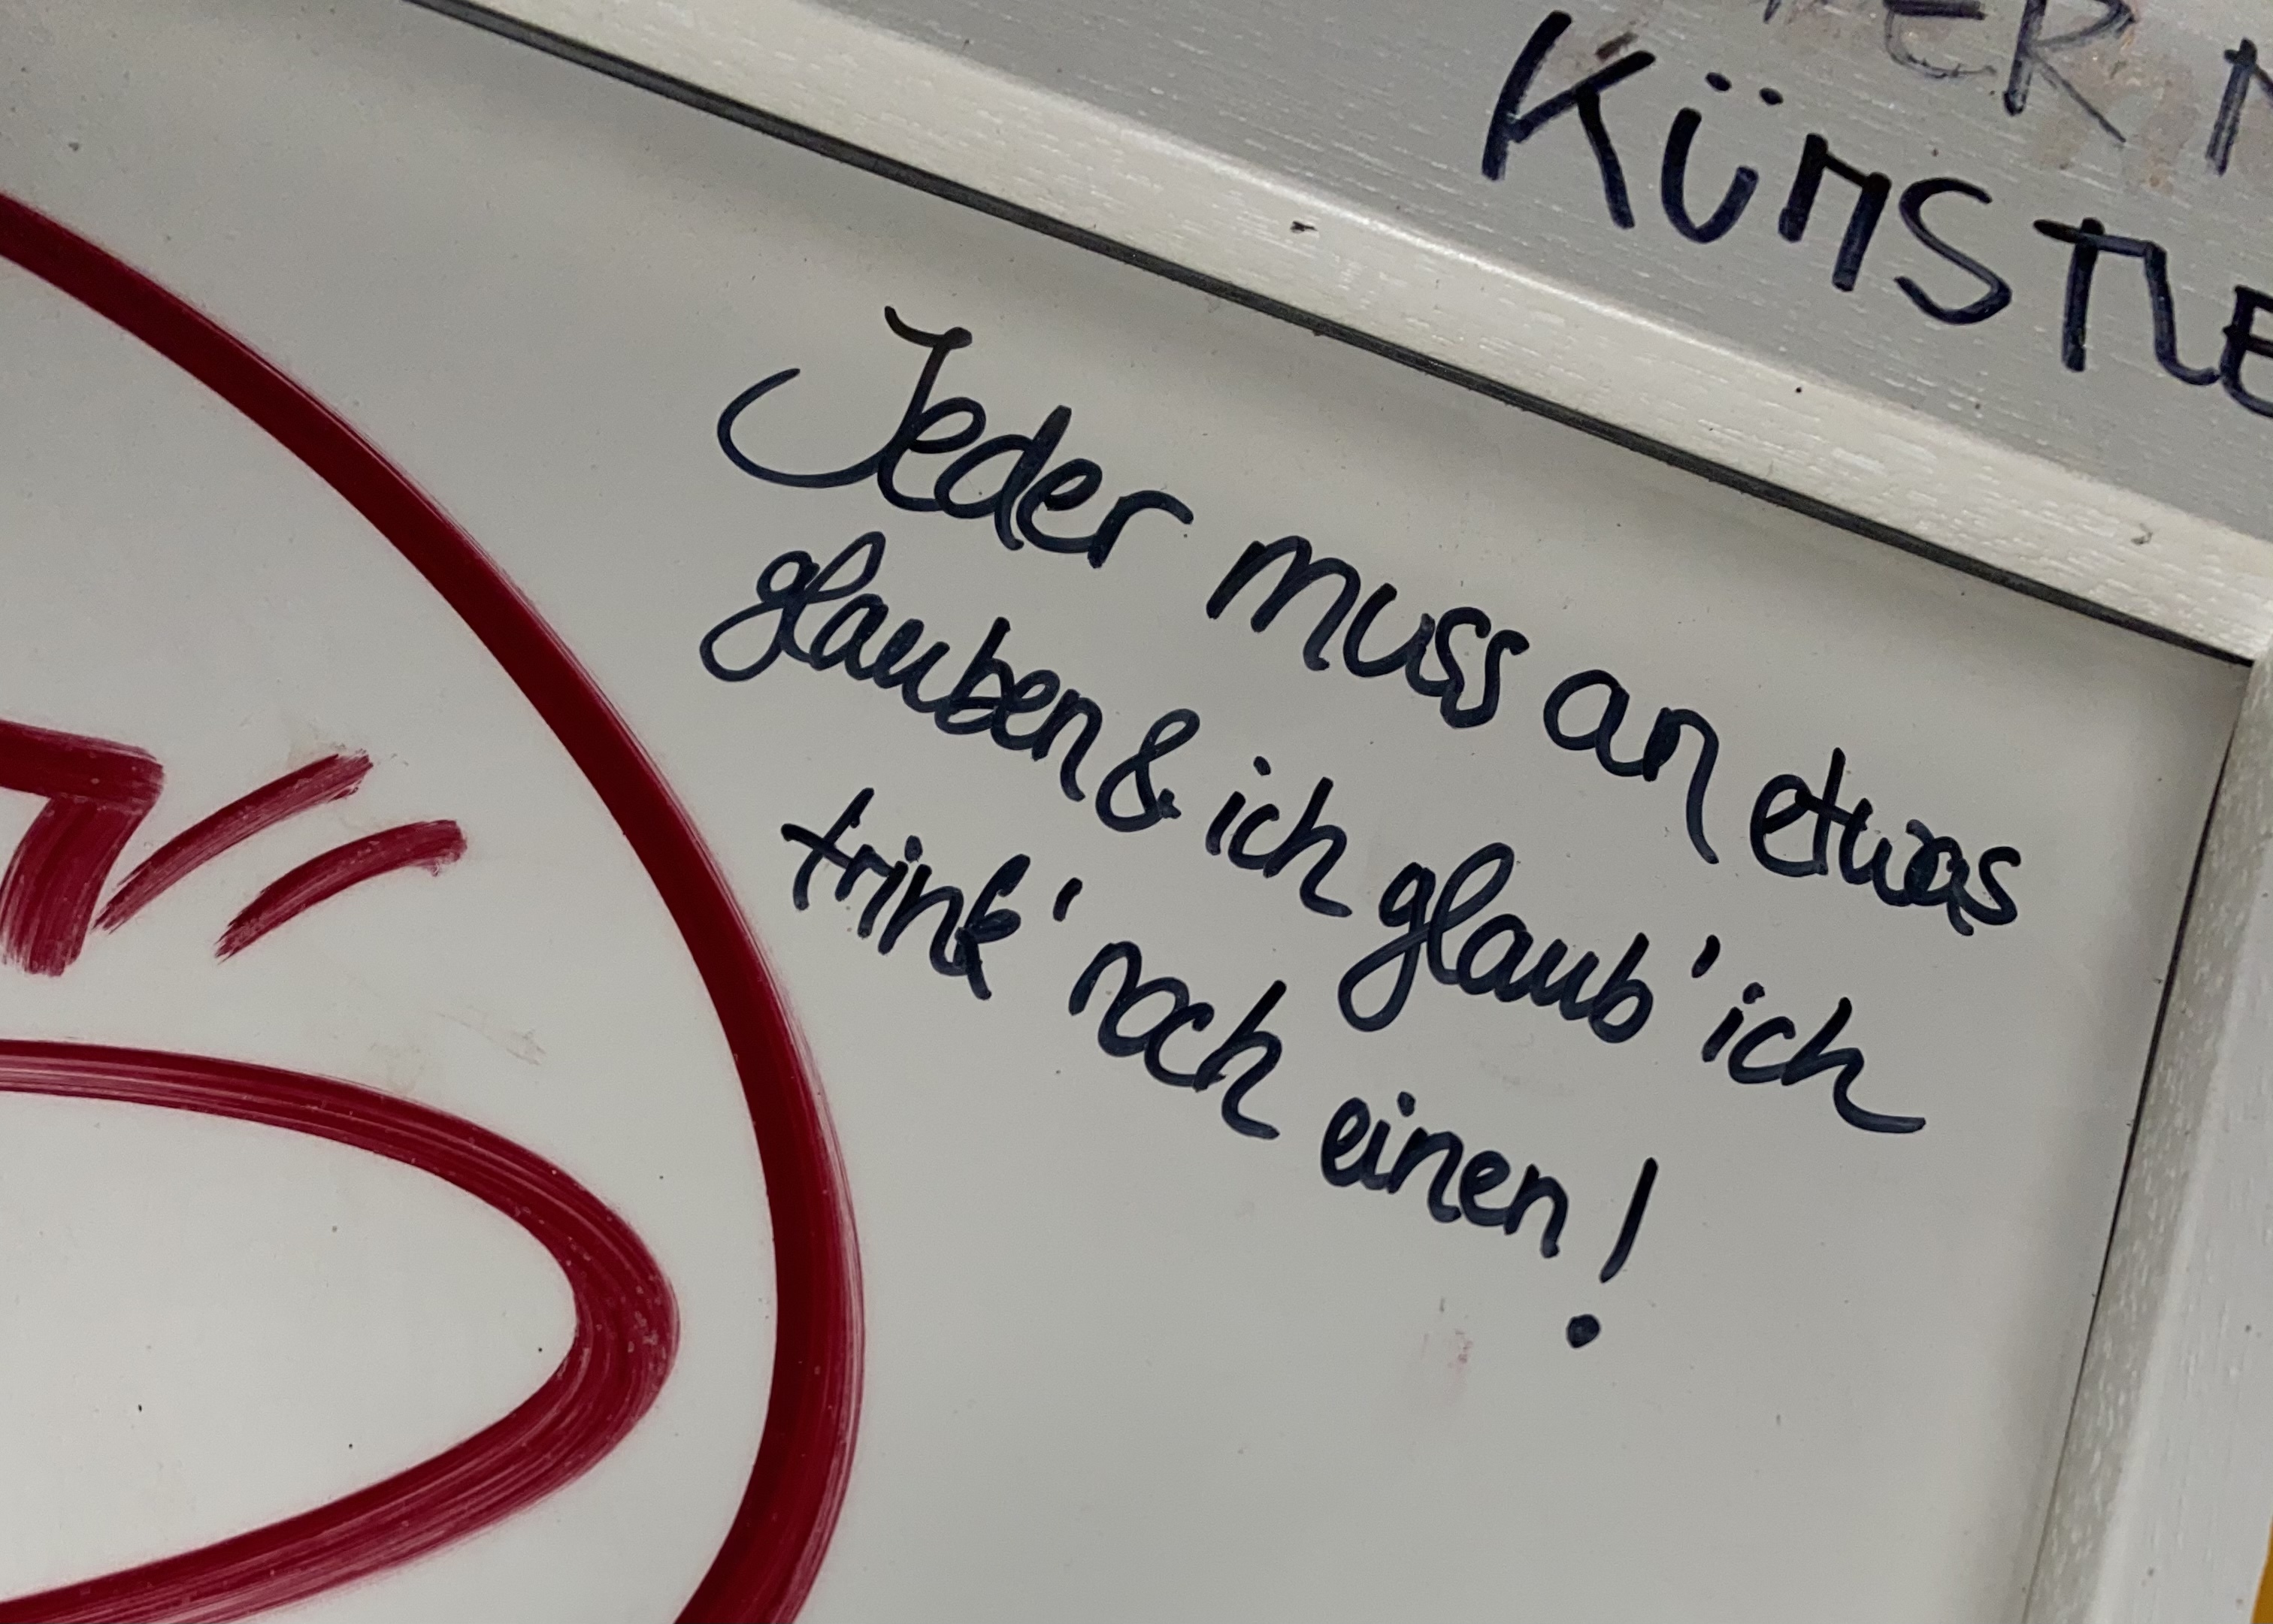 KÜNSTLE
Jeder muss an etwas
glauben & ich glaub' ich
trink' noch einen!